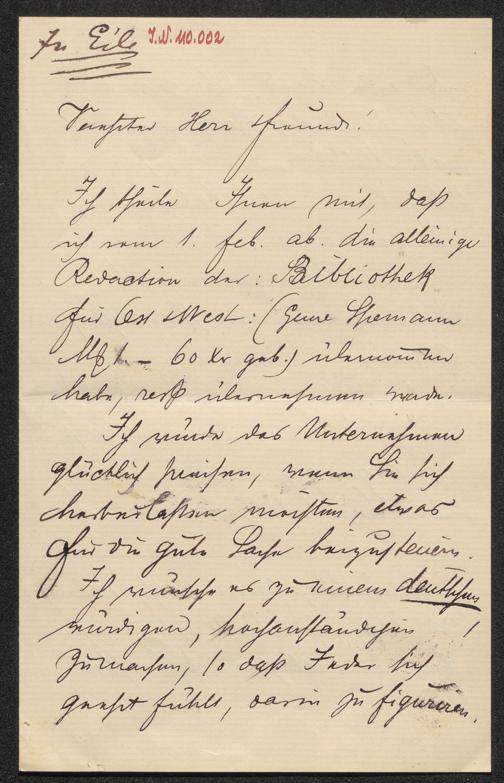 In Eile
I.N. 110.002
Verehrter Herr Freund!
Ich theile Ihnen mit, daß
ich vom 1. Feb. ab. die alleinige
Redaction der: Bibliothek
für Ost & West: (Genre Spemann
M 1 – 60 Kr geb.) übernom̄en
habe, resp übernehmen werde.
Ich würde das Unternehmen
glücklich preisen, wenn Sie sich
herbeilassen möchten, etwas
für die gute Sache beizusteuern.
Ich wünsche es zu einem deutschen
würdigen, hochanständigen !
zu machen, so daß Jeder sich
geehrt fühlt, darin zu figuriren.